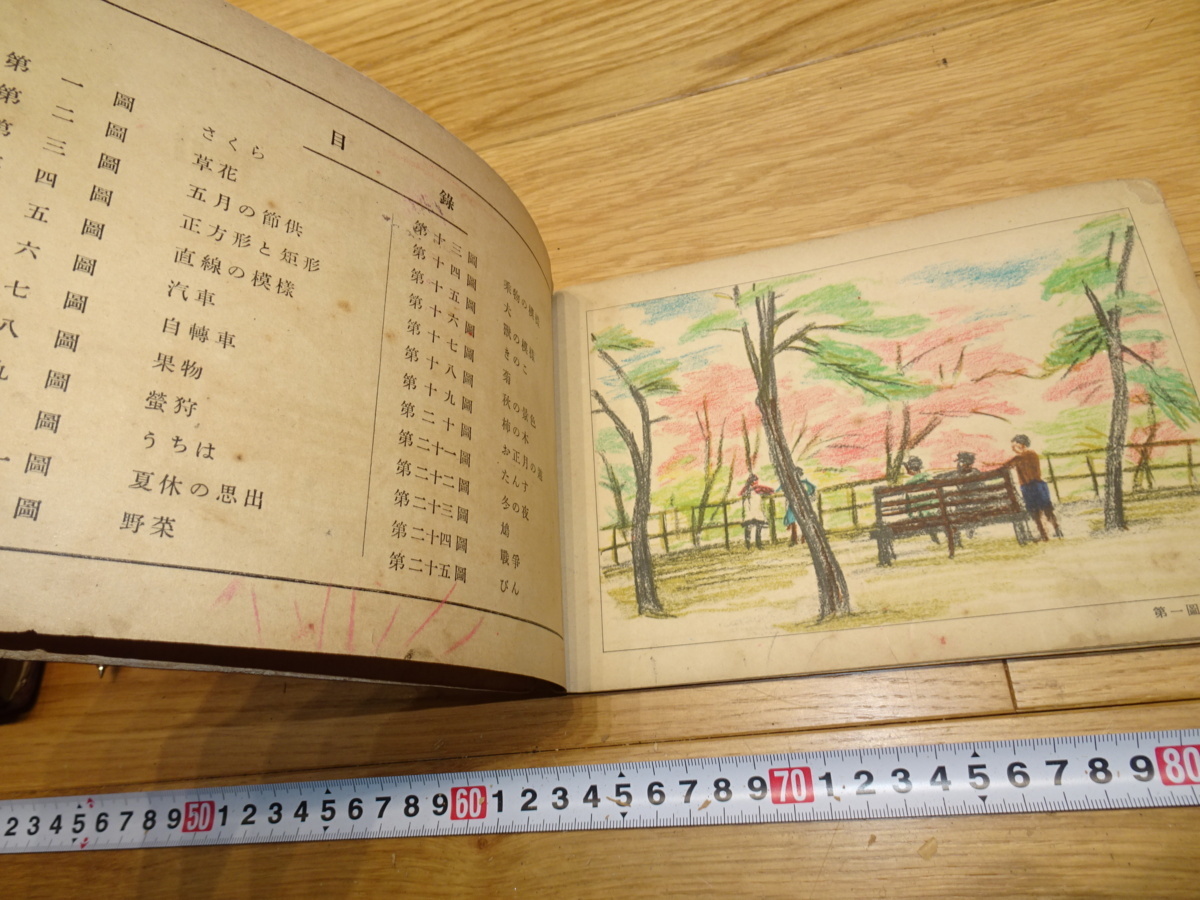 目錄
第一圖 さくら
第二圖 草花
第三圖 五月の節供
四圖 正方形と矩形
五圖 直線の模樣
六圖 汽車
七圖 自轉車
八圖 果物
圖 螢狩
圖 うちは
一圖 夏休の思出
圖 野菜
第十三圖
第十四圖
第十五圖
第十六圖 きのこ
第十七圖 菊
第十八圖 秋の景色
第十九圖 柿の木
第二十圖 お正月の
第二十一圖 たんす
第二十二圖 冬の夜
第二十三圖
第二十四圖 戰爭
第二十五圖 びん
第一圖
2 3 4 5 6 7 8 9 50 1 2 3 4 5 6 7 8 9 60 1 2 3 4 5 6 7 8 9 70 1 2 3 4 5 6 7 8 9 80